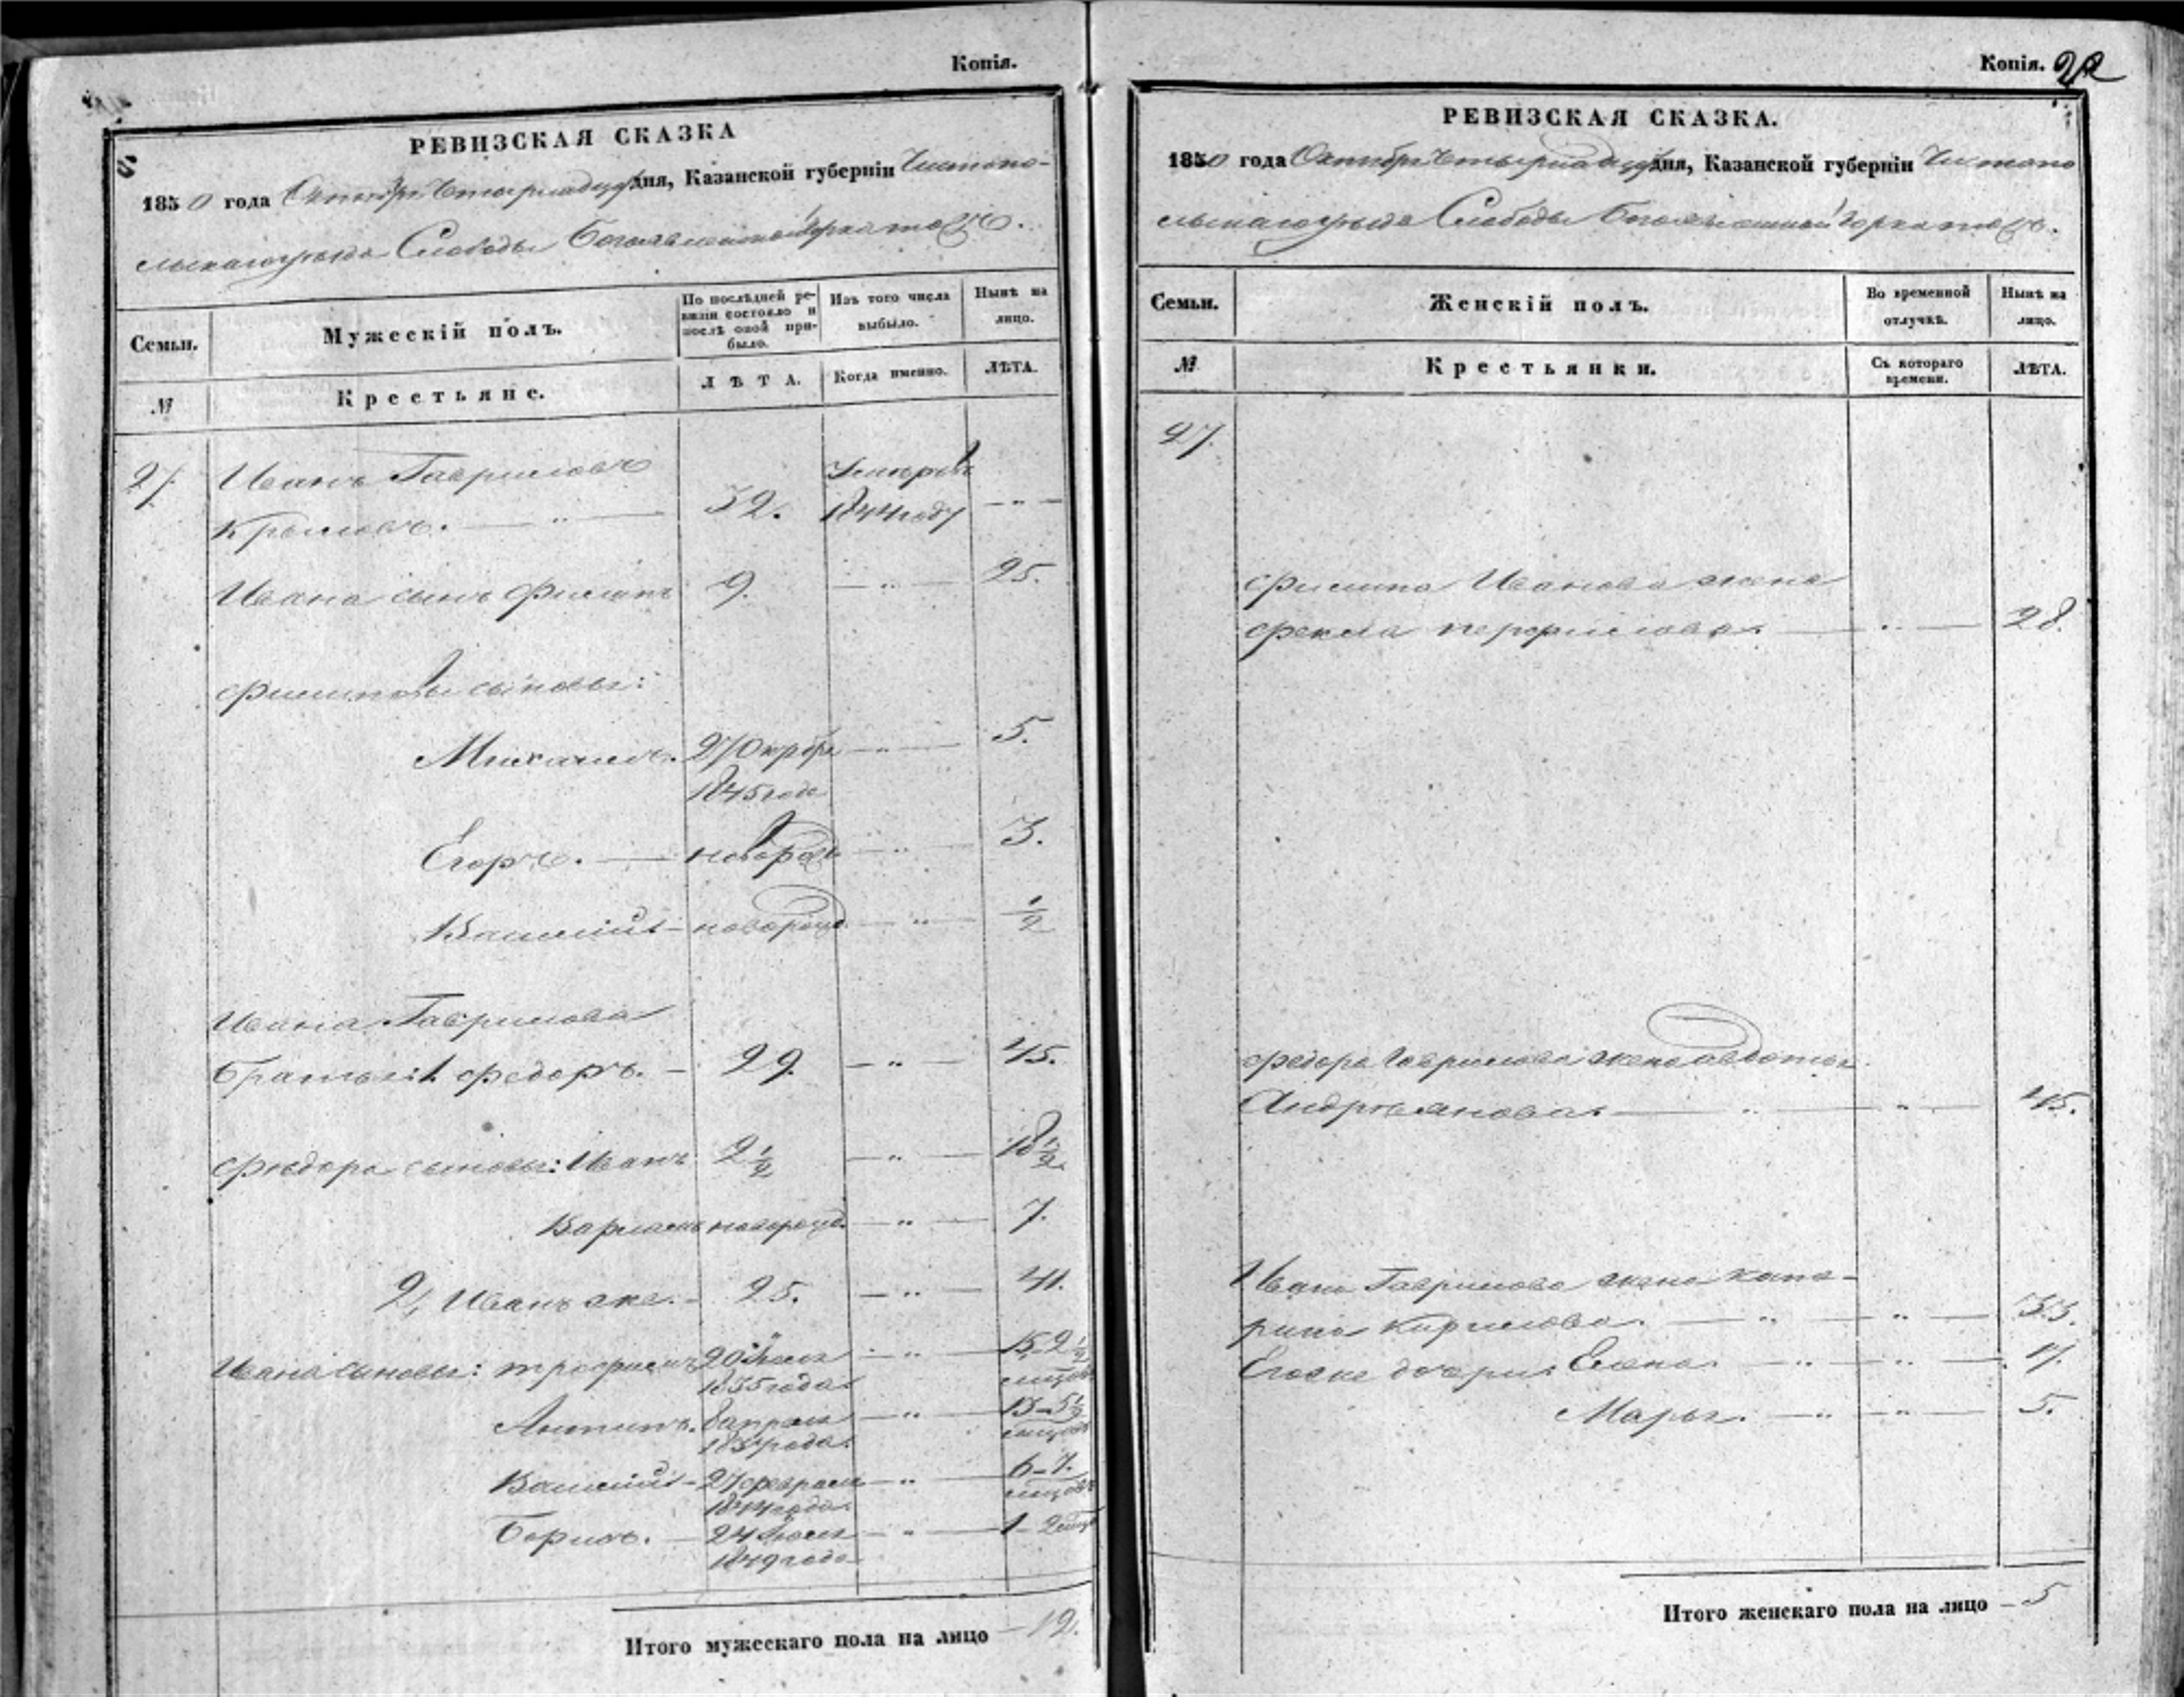 Копія.
РЕВИЗСКАЯ СКАЗКА
1850 года Октября Четырнадцат дня, Казанской губерніи Чистопо-
льскагоуѣзда Слободы Богоявленской Горка тожъ.
Семьи.
Мужескій полъ.
По послѣдней ре-
визіи состояло и
послѣ оной при-
было.
Изъ того числа
выбыло.
Нынѣ на
лицо.
№
Крестьяне.
ЛѢТА.
Когда именно.
ЛѢТА.
27. Иванъ Гавриловъ Умеръ въ
Крыловъ. — " — 32. 1844 году — " —
Ивана сынъ Филипъ 9. — " — 25.
Филиповы сыновы:
Михаилъ. 27 Октября — " — 5.
1845 года
Егоръ. — новорож — " — 3.
Василій — новорожд — " — 1/2
Ивана Гаврилова
братья: 1. Федоръ. — 29. — " — 45.
Федора сыновы: Иванъ 2 1/2 — " — 18 1/2
Варламъ новорожд. — " — 7.
2, Иванъ же. — 25. — " — 41.
Ивана сыновы: Трофимъ 20 — " — 15-2 1/2
1835 года. мѣсяц
Антипъ. 8 апреля — " — 13-5 1/2
183 года. мѣсяц
Василій — 27 февраля — " — 6-7.
1844 года. мѣсяц
Борисъ. — 24 — " — 1-2 мѣс
1849 года
Итого мужескаго пола на лицо — 12.
Копія. 22
РЕВИЗСКАЯ СКАЗКА.
1850 года Октября Четырнадцат дня, Казанской губерніи Чистопо
льскагоуѣзда Слободы Богоявленской Горка тожъ.
Семьи.
Женскій полъ.
Во временной
отлучкѣ.
Нынѣ на
лицо.
№
Крестьянки.
Съ котораго
времени.
ЛѢТА.
27.
Филипа Иванова жена
Фекла Перфилова. — " — 28.
Федора Гаврилова жена Авдотья
Андреянова. — " — " — 45.
Ивана Гаврилова жена Кате-
рина Кирилова. — " — " — 33.
Егоже дочери: Елена. — " — " — 17.
Марья. — " — " — 5.
Итого женскаго пола на лицо — 5